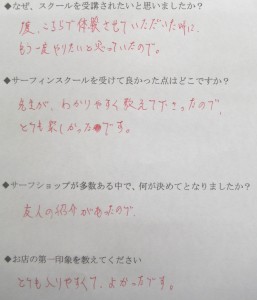 ◆なぜ、スクールを受講されたいと思いましたか？
度、こちらで体験させていただいた時に、
もう一度やりたいと思っていたので。
◆サーフィンスクールを受けて良かった点はどこですか？
先生が、わかりやすく教えて下さったので、
とても楽しかったです。
◆サーフショップが多数ある中で、何が決めてとなりましたか？
友人の紹介があったので、
◆お店の第一印象を教えてください
とても入りやすくて、よかったです。